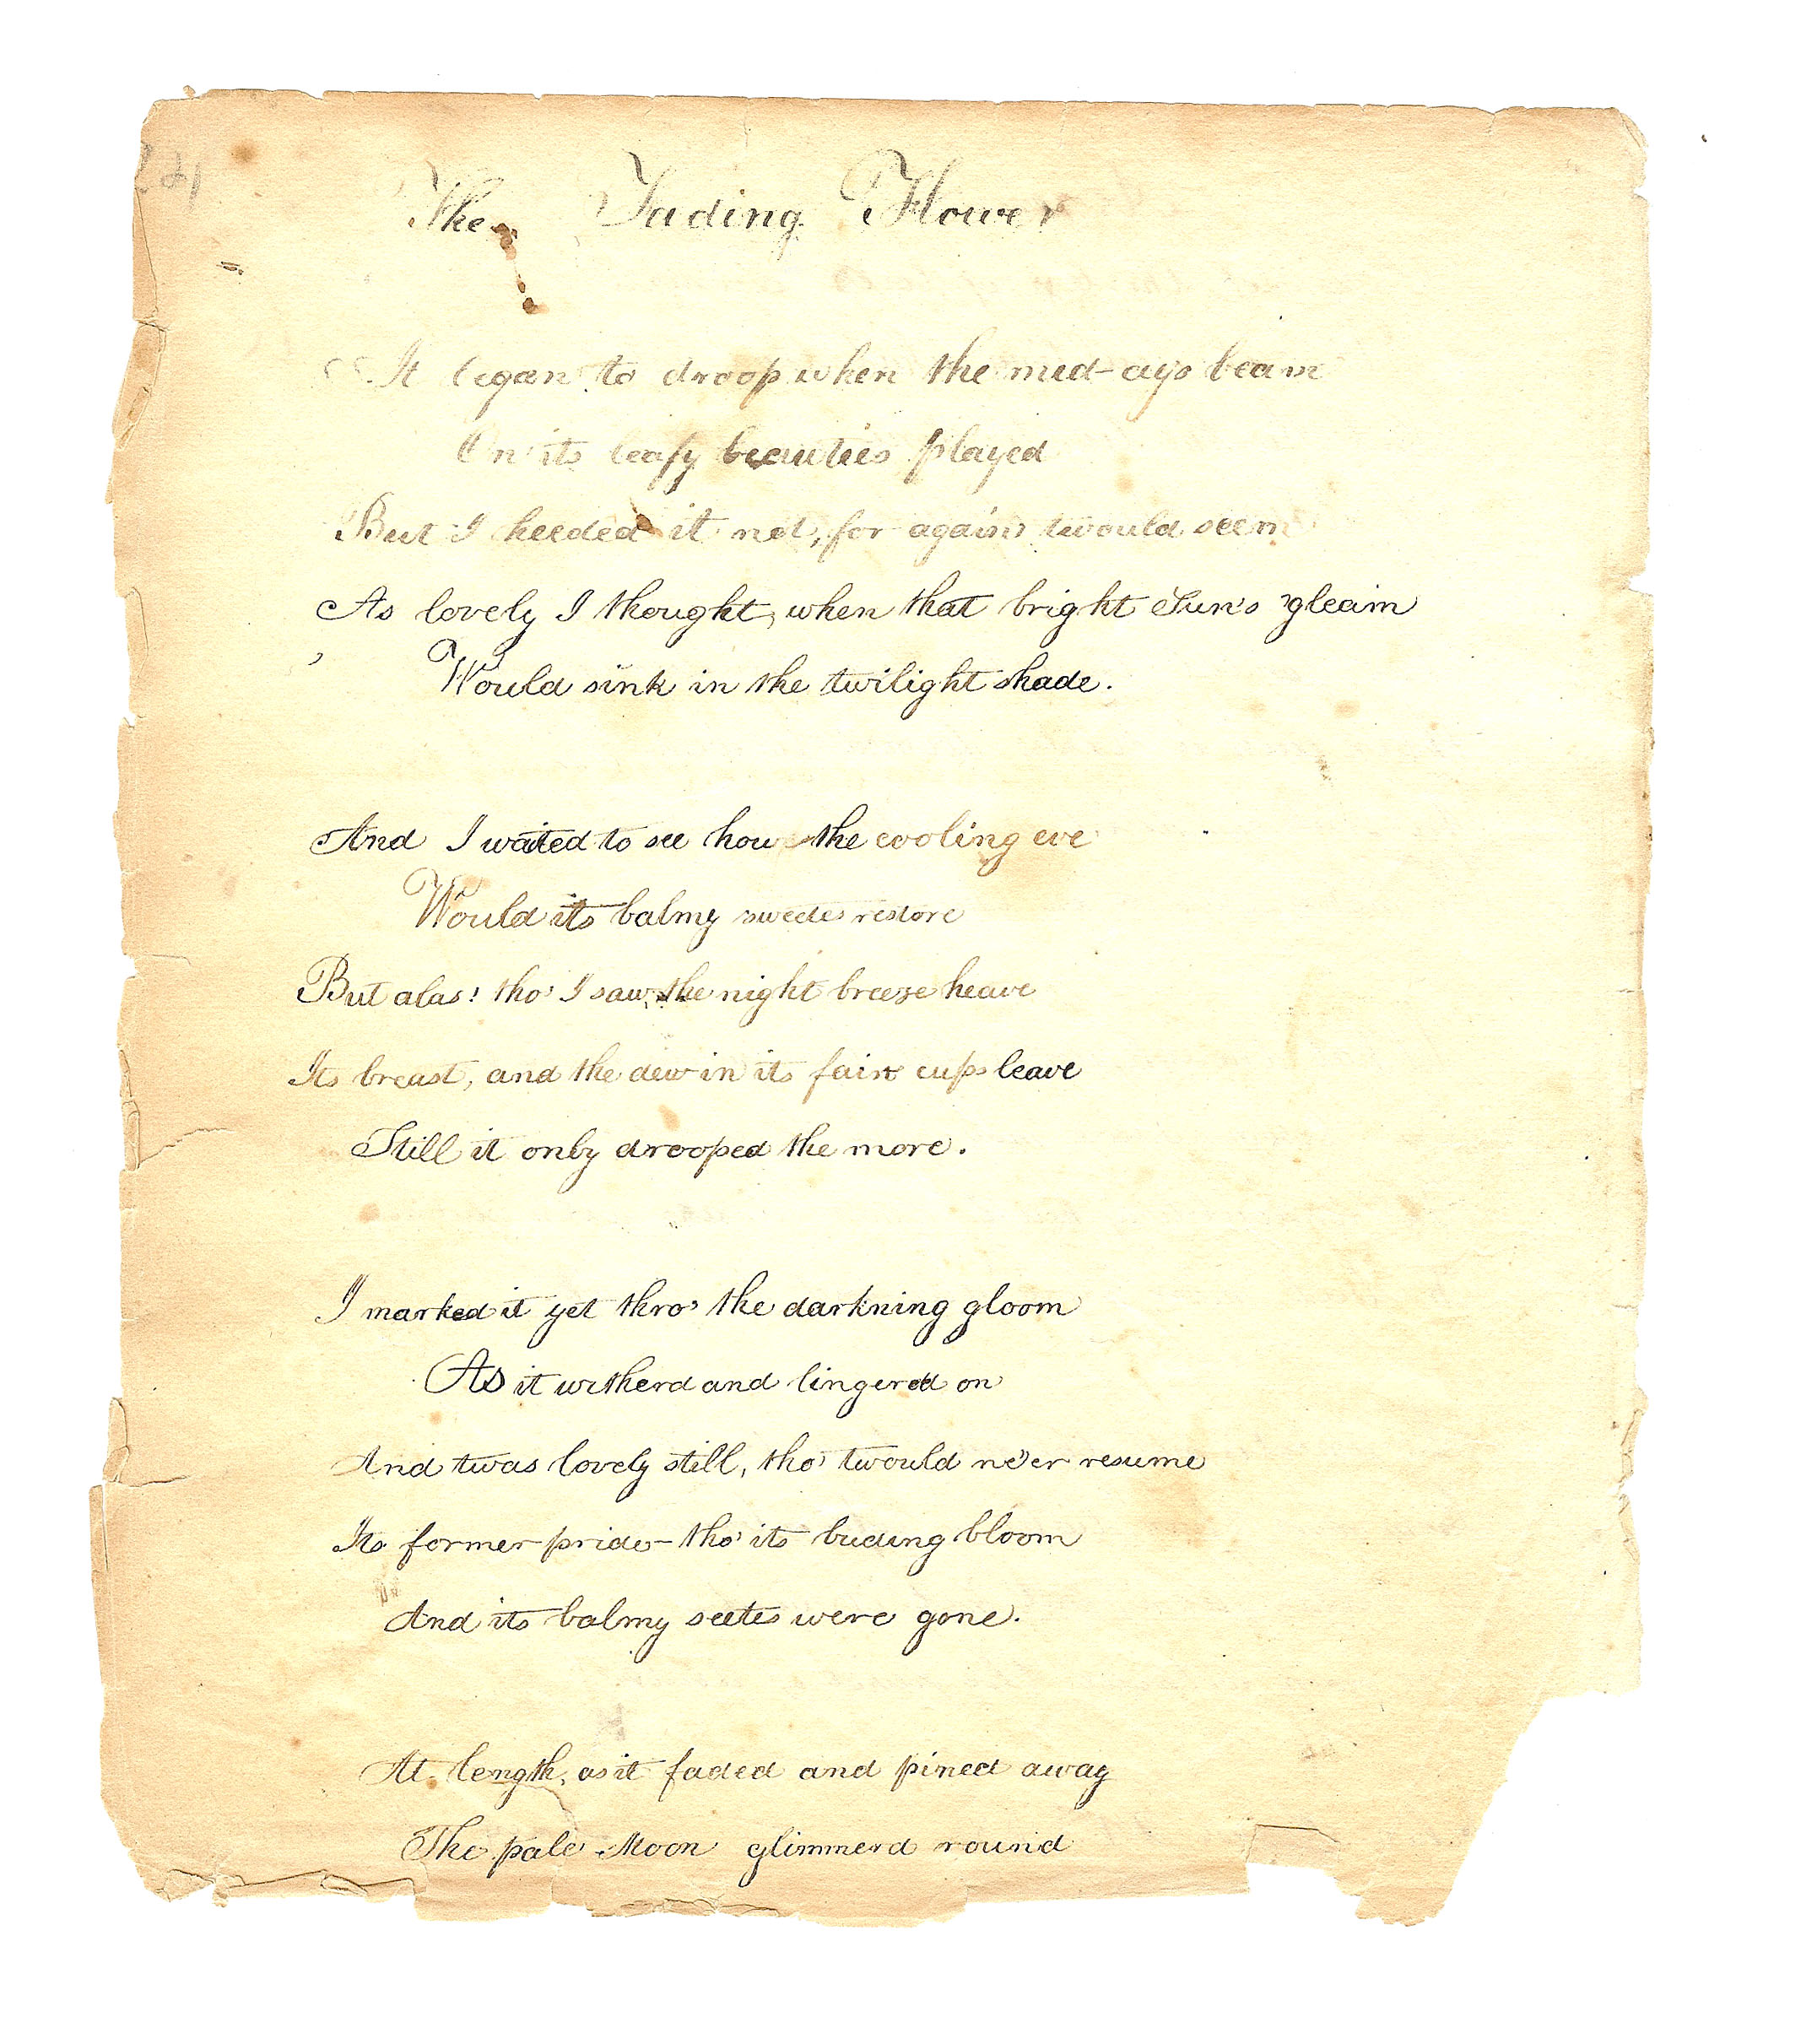 The Fading Flower
It began to droop when the mid-ays beam
On its leafy beauties played
But I heeded it not, for again twould seem
As lovely I thought, when that bright Sun's gleam
Would sink in the twilight shade.
And I waited to see how the cooling eve
Would its balmy sweetes restore
But alas! tho' I saw the night breeze heave
Its breast, and the dew in its fair cups leave
Still it only drooped the more.
I marked it yet thro' the darkning gloom
As it witherd and lingered on
And twas lovely still, tho' twould ne'er resume
Its former pride- tho' its buding bloom
And its balmy seetes were gone.
At length, as it faded and pined away
The pale Moon glimmerd round